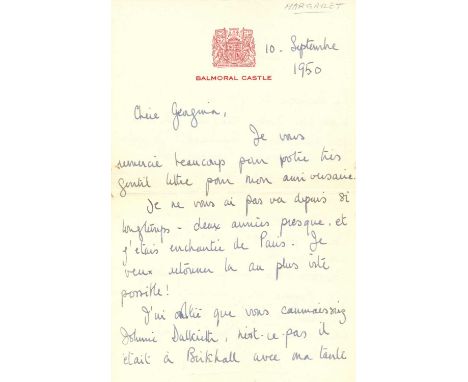 MARGARET
10. Septembre
1950
BALMORAL CASTLE
Chère Georgina,
Je vous
remercie beaucoup pour votre très
gentil lettre pour mon anniversaire.
Je ne vous ai pas vu depuis si
longtemps - deux années presque, et
j'étais enchantée de Paris. Je
veux retourner là au plus vite
possible!
J'ai oublié que vous connaissiez
Johnnie Dalkeith, n'est-ce-pas il
était à Birkhall avec ma tante